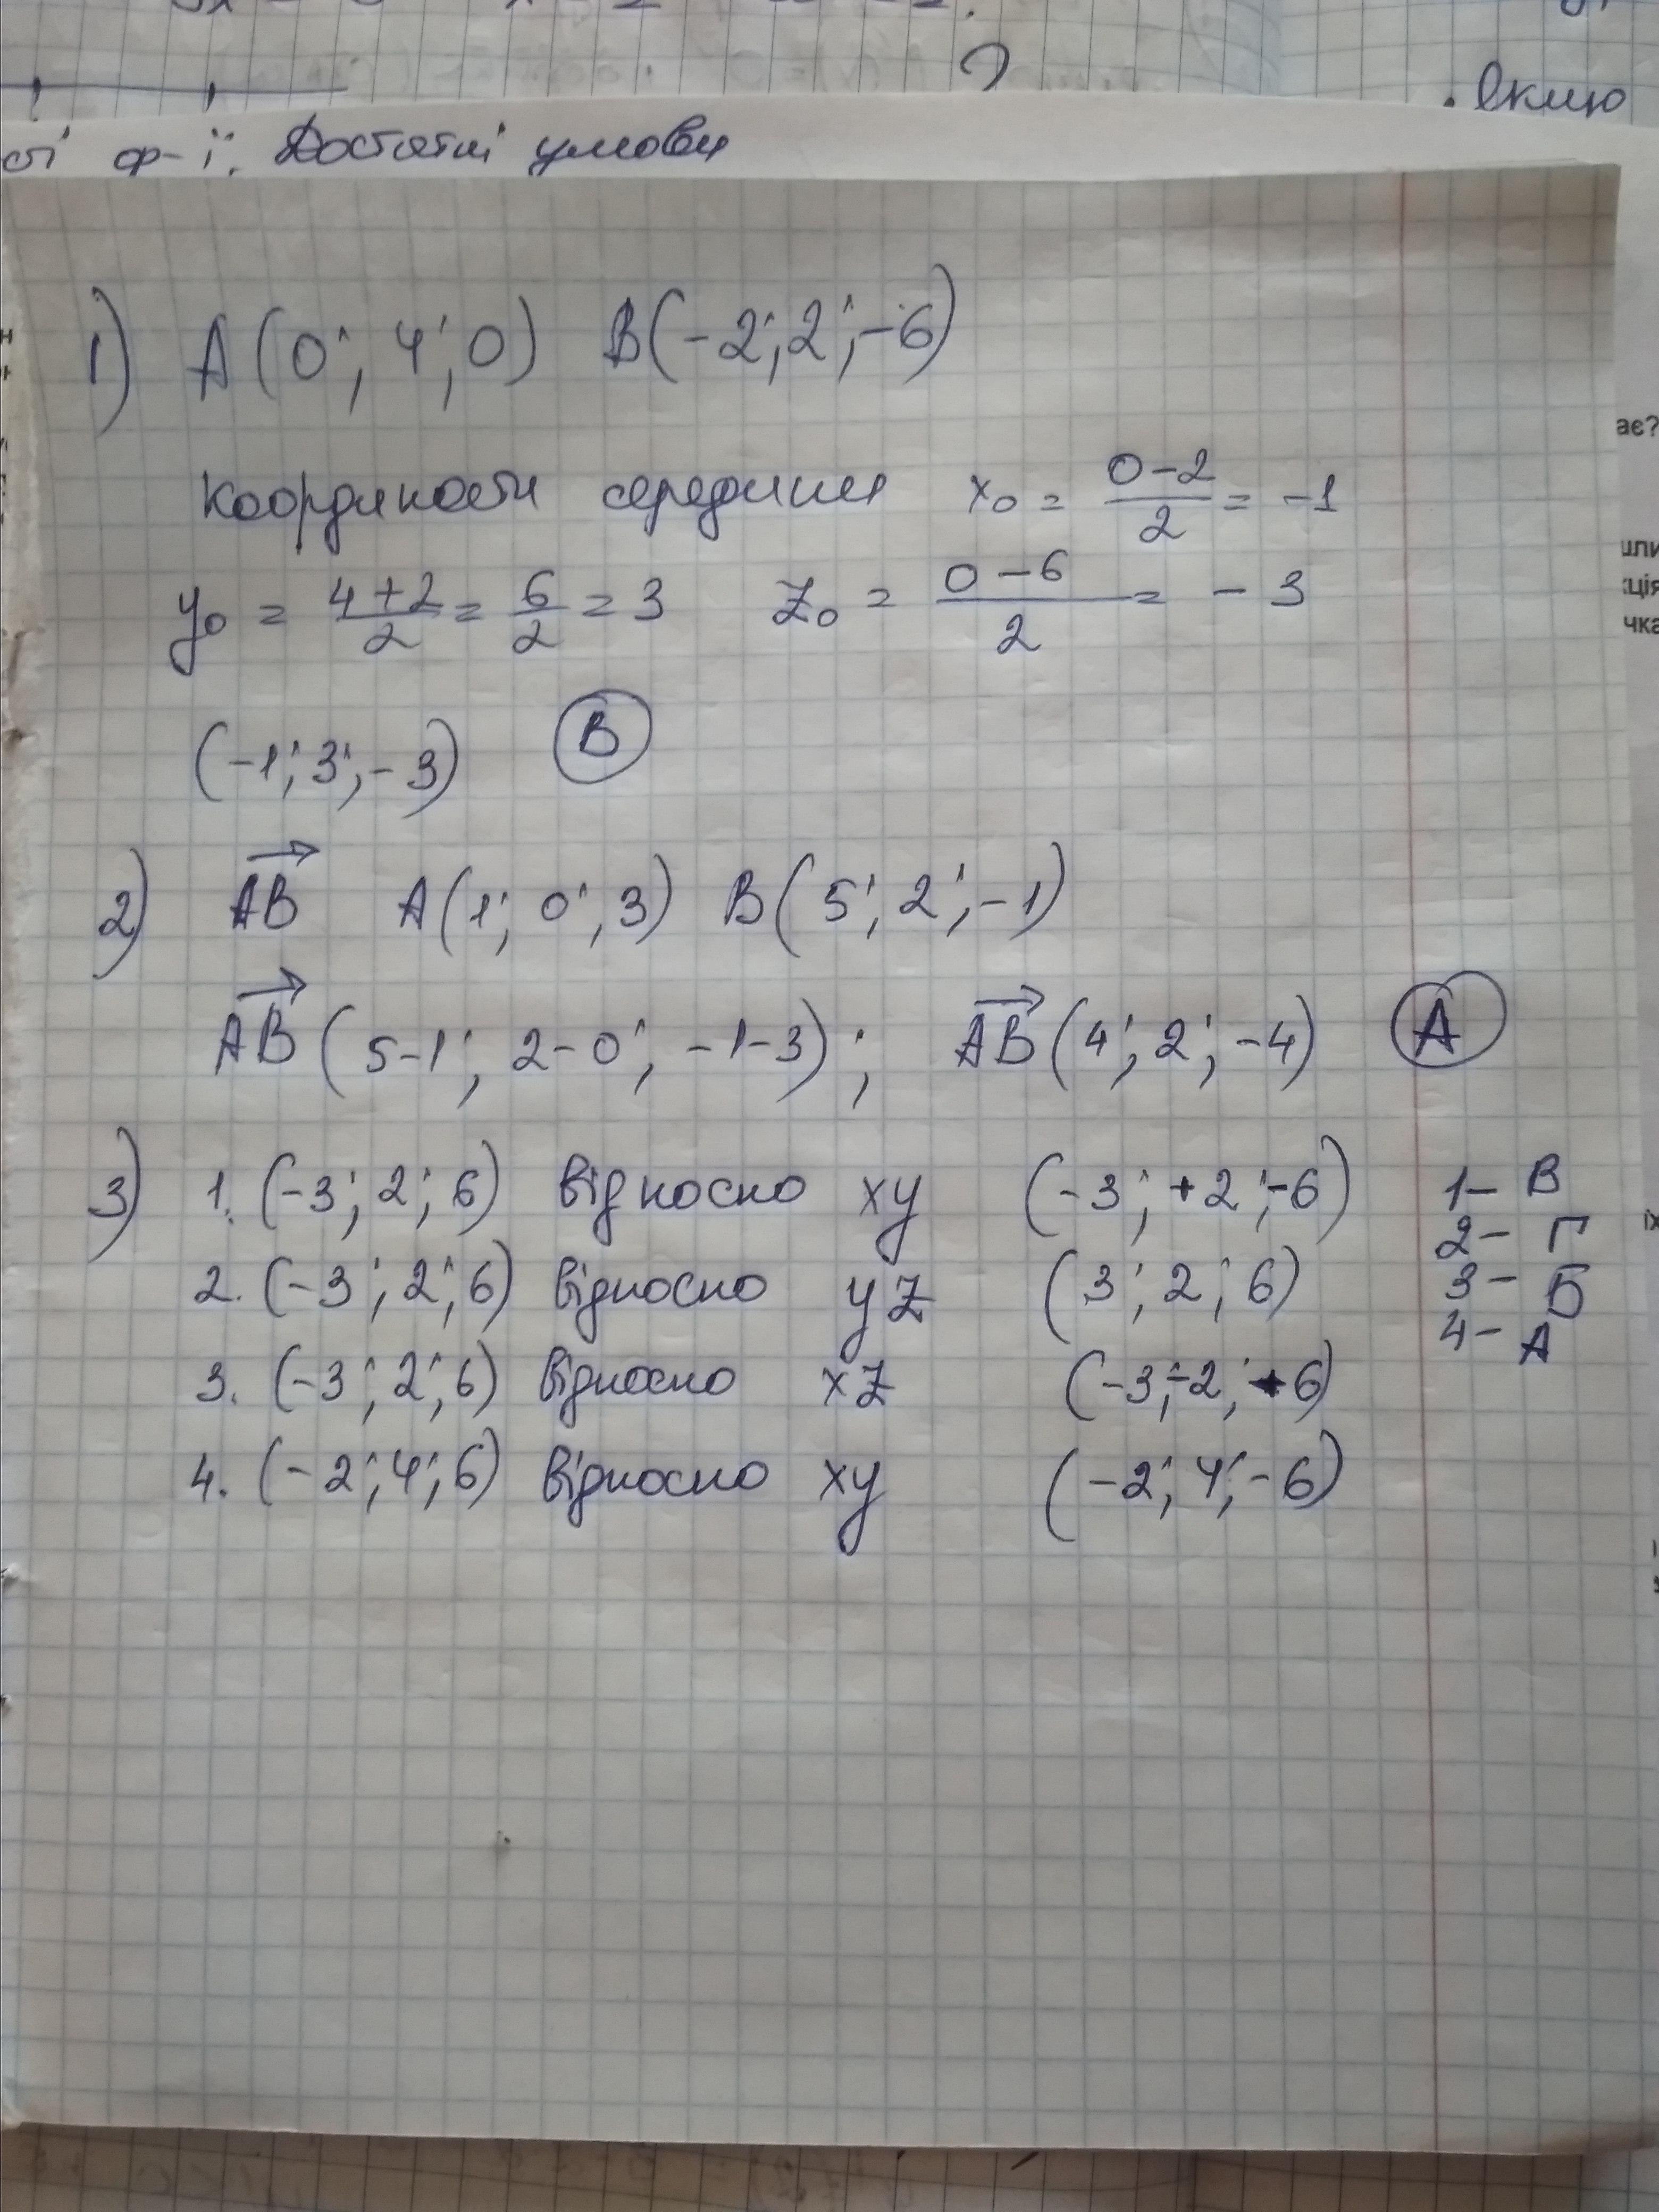 . Вклю
сті ф-ії. Достатні умови
1) A(0; 4; 0) B(-2; 2; -6)
ає?
Координати середини x₀ = (0-2)/2 = -1
y₀ = (4+2)/2 = 6/2 = 3 z₀ = (0-6)/2 = -3
(-1; 3; -3) В
2) →AB A(1; 0; 3) B(5; 2; -1)
→AB (5-1; 2-0; -1-3); →AB (4; 2; -4) А
3) 1. (-3; 2; 6) відносно xy (-3; +2; -6) 1- В
2. (-3; 2; 6) відносно yz (3; 2; 6) 2- Г
3. (-3; 2; 6) відносно xz (-3; -2; +6) 3- Б
4. (-2; 4; 6) відносно xy (-2; 4; -6) 4- А